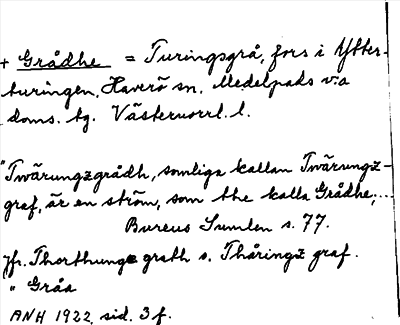 + Grådhe = Turingsgrå, fors i Ytter-
turingen, Haverö sn. Medelpads v:a
doms. tg. Västernorrl. l.
"Twärungzgrådh, somliga kallan Twärungz-
graf, är en ström, som the kalla Grådhe,...
Bureus Sumlen s. 77.
Jfr. Thorthunge grath s. Thåringz graf.
" Gråa
ANH 1922, sid. 3 f.